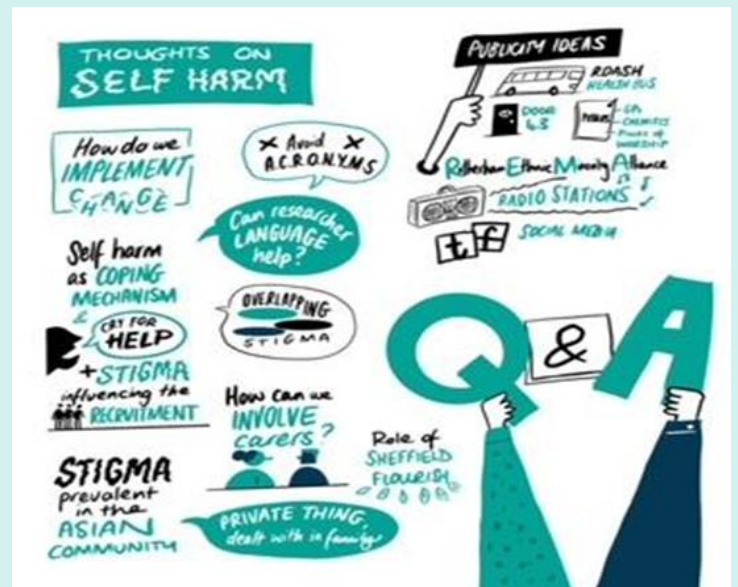 THOUGHTS ON
SELF HARM
How do we
IMPLEMENT
CHANGE
Avoid
ACRONYMS
Can researcher
LANGUAGE
help?
Self harm
as COPING
MECHANISM
&
CRY FOR
HELP
+ STIGMA
influencing the
RECRUITMENT
OVERLAPPING
STIGMA
How can we
INVOLVE
carers?
STIGMA
prevalent
in the
ASIAN
COMMUNITY
PRIVATE THING,
dealt with in
Role of
SHEFFIELD
FLOURISH
PUBLICITY IDEAS
RDASH
HEALTH BUS
DOOR
43
GPs
CHEMISTS
Places of
WORSHIP
Rotherham Ethnic Minority Alliance
RADIO STATIONS
t f SOCIAL MEDIA
Q & A